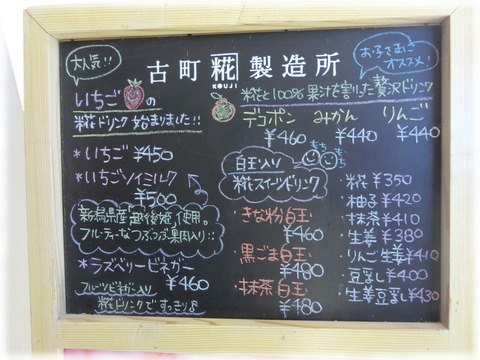 大人気!!
古町糀製造所
KOUJI
お子さまに
オススメ!
いちごの
糀ドリンク始まりました!!
*いちご ¥450
*いちごソイミルク
¥500
新潟県産越後姫使用。
フルーティーなつぶつぶ果肉入り!!
*ラズベリービネガー
¥460
フルーツビネガー入り
糀ドリンクですっきり♪
糀と100%果汁を割った贅沢ドリンク
デコポン みかん りんご
¥460 ¥440 ¥440
白玉入り
もちもち
糀スイーツドリンク
・きな粉白玉
¥460
・黒ごま白玉
¥480
・抹茶白玉
¥480
・糀 ¥350
・柚子 ¥420
・抹茶 ¥410
・生姜 ¥380
・りんご生姜 ¥410
・豆乳し ¥400
・生姜豆乳し ¥430